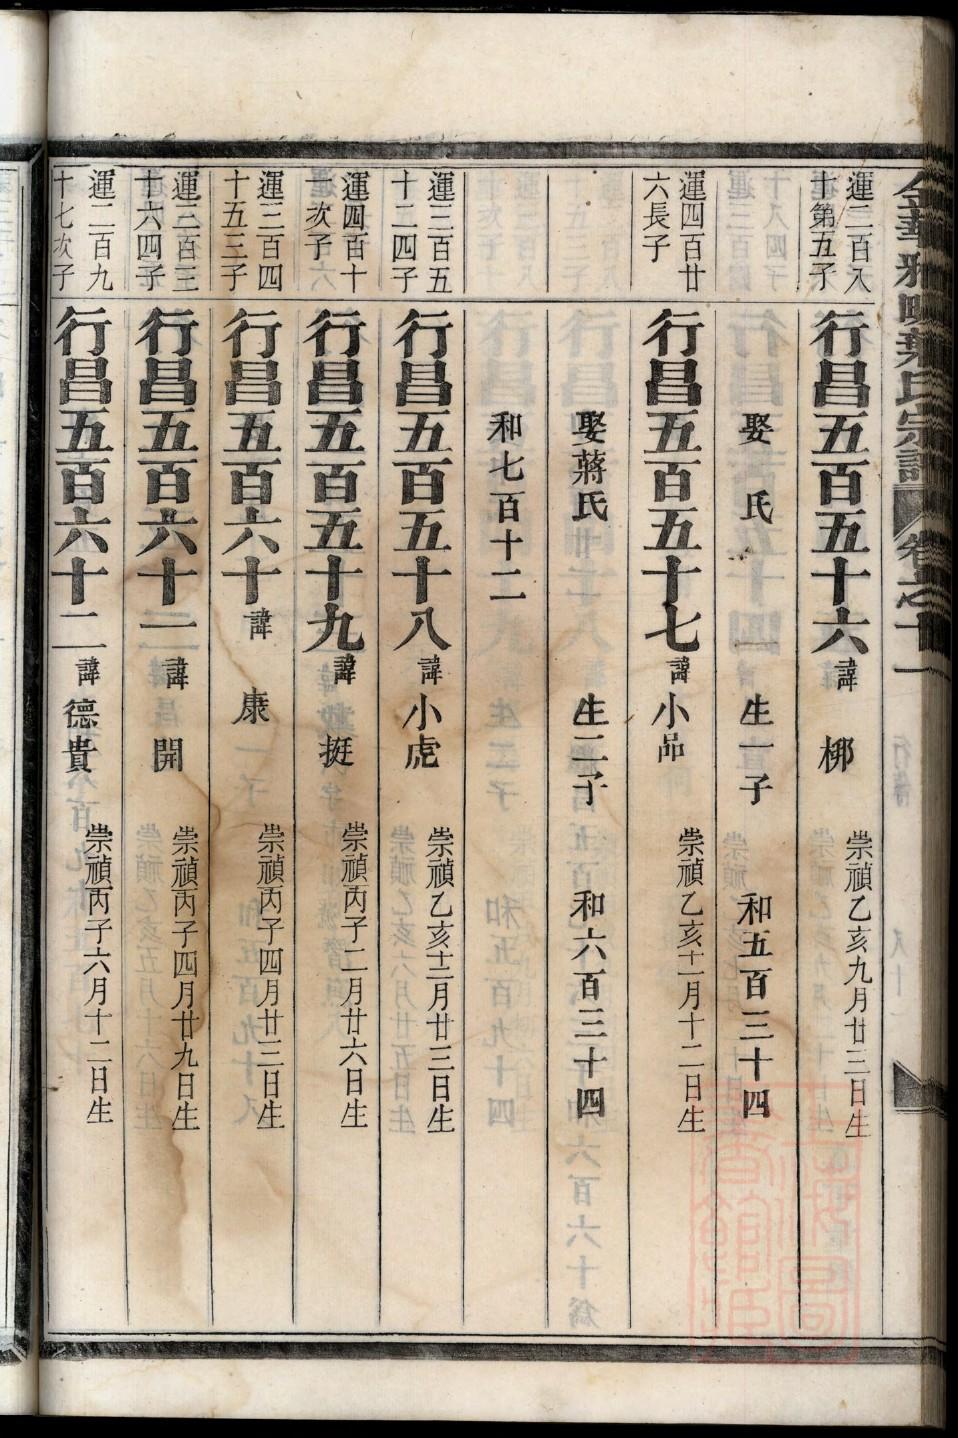 金華雅畈葉氏宗譜 卷之十一
運二百八
七第五子
行昌五百五十六 諱 梆 崇禎乙亥九月廿三日生
娶 氏 生一子 和五百三十四
運四百廿
六長子
行昌五百五十七 諱 小㠵 崇禎乙亥十一月十二日生
娶蔣氏 生二子 和六百三十四
和七百十二
運三百五
十二四子
行昌五百五十八 諱 小虎 崇禎乙亥十二月廿三日生
運四百十
一次子
行昌五百五十九 諱 挺 崇禎丙子二月廿六日生
運三百四
十五三子
行昌五百六十 諱 康 崇禎丙子四月廿三日生
運二百三
十六四子
行昌五百六十一 諱 開 崇禎丙子四月廿九日生
運二百九
十七次子
行昌五百六十二 諱 德貴 崇禎丙子六月十二日生